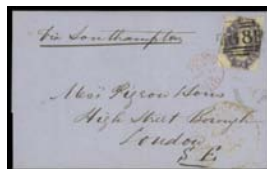 Via Southampton
Mess Pigeon Sons
High Street Borough
London
S E